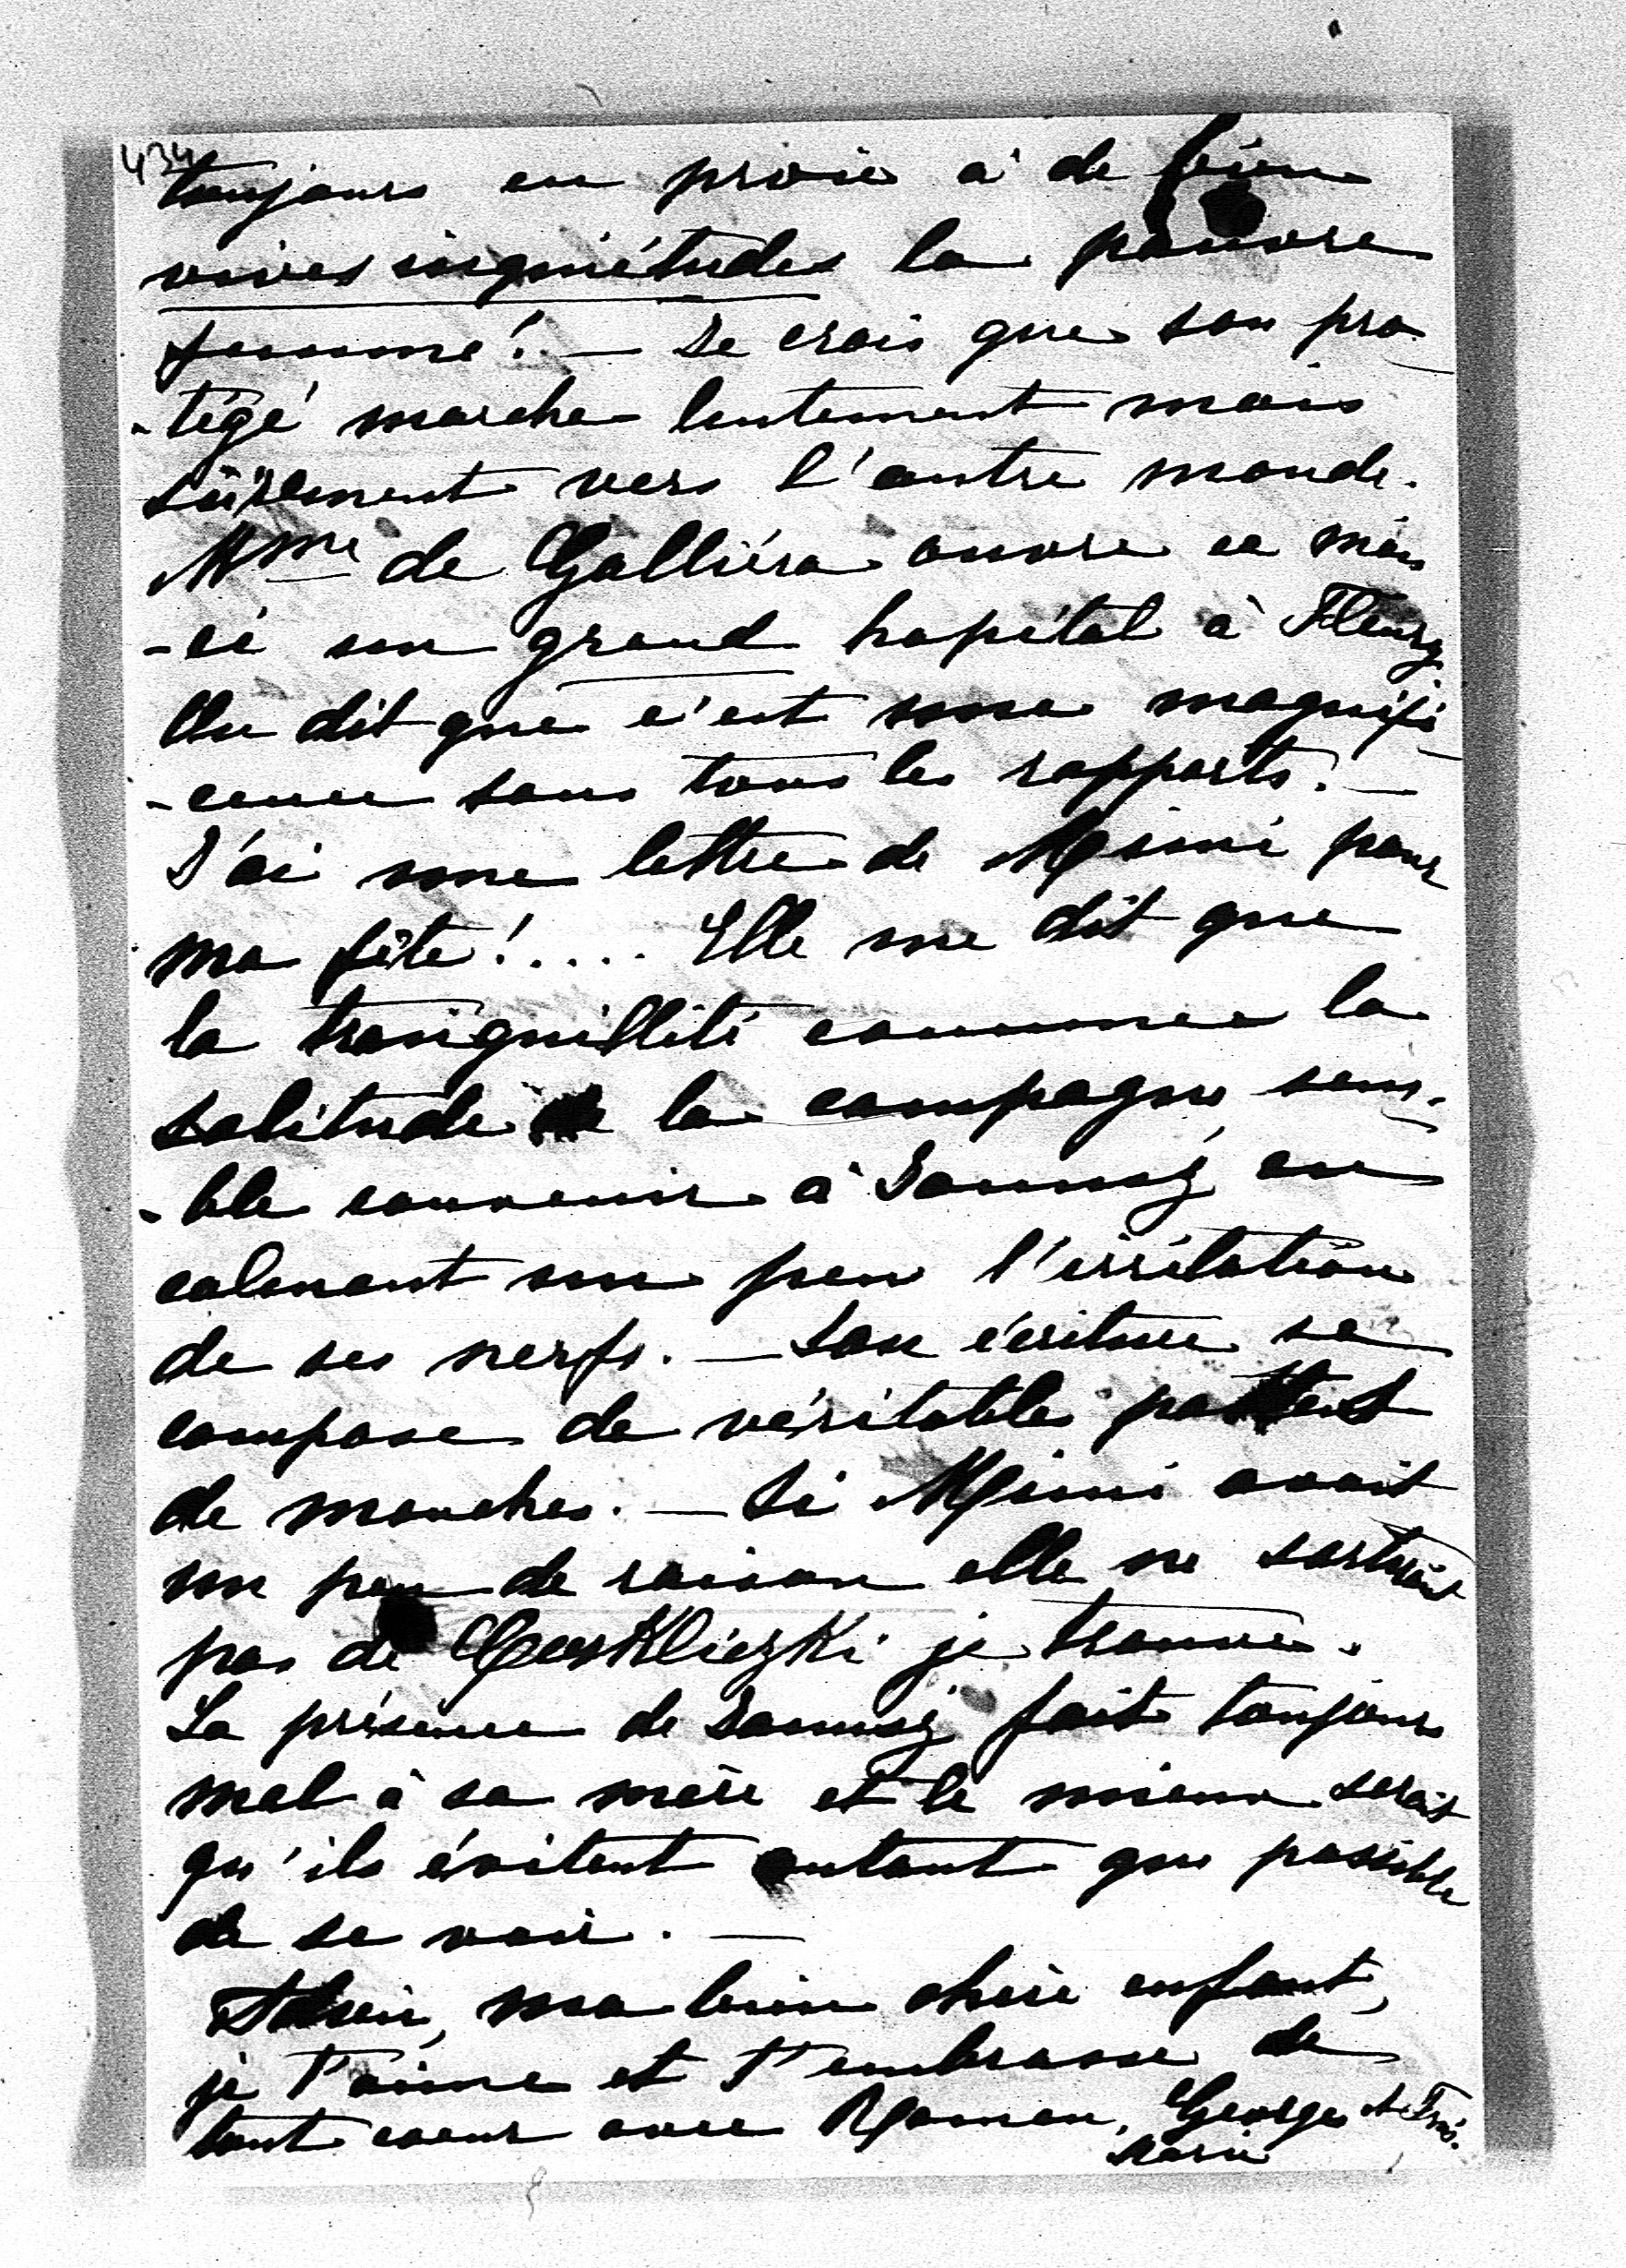 434
toujours en proie à de bien
vives inquiétudes la pauvre
femme! — Je crois que son pro-
-tégé marche lentement mais
sûrement vers l'autre monde.
Mme de Galliéra ouvre ce mois
-ci son grand hopital à Fleury
On dit que c'est une magnifi-
-cence sous tous les rapports. —
J'ai une lettre de Mimi pour
ma fête!.... Elle me dit que
la tranquillité comme la
solitude de la campagne sem-
-ble convenir à en
calmant un peu l'irritation
de ses nerfs. — Son écriture se
compose de véritable
de mouches. — Si Mimi avait
un peu de raison elle ne sortirait
pas de je trouve.
La présence de fait toujours
mal à sa mère et le mieux serait
qu'ils évitent autant que possible
de se voir. —
Adieu, ma bien chère enfant,
je t'aime et t'embrasse de
tout coeur avec Maman, Georges et
Marie